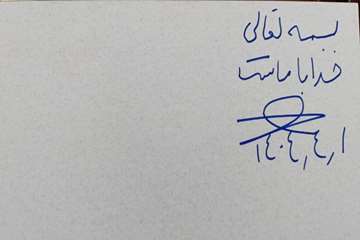 بسمه تعالی
خدا با ماست
۱۴۰۴,۴,۱